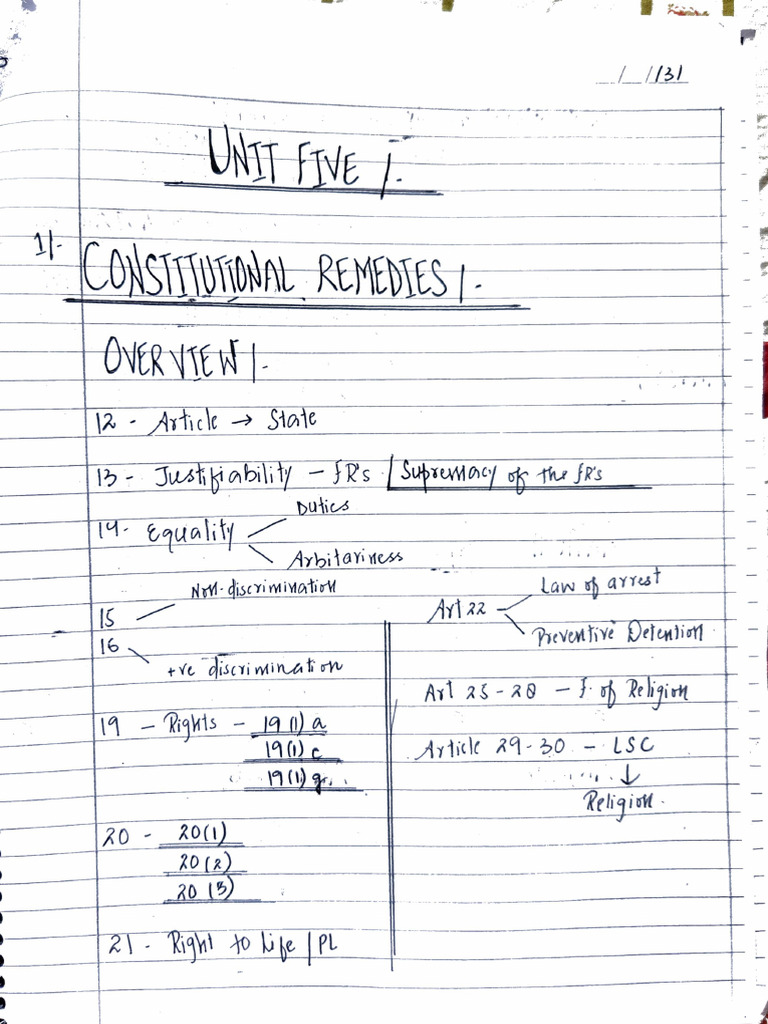 / /131
UNIT FIVE /.
1/-
CONSTITUTIONAL REMEDIES /.
OVERVIEW /.
12 - Article → State
13 - Justifiability - fR's / Supremacy of the fR's
14- Equality
Duties
Arbitariness
15
Non-discrimination
16
+ve discrimination
19 - Rights - 19 (1) a
19(1) c
19(1) g.
20 - 20(1)
20 (2)
20 (3)
21 - Right to Life / PL
Art 22
Law of arrest
Preventive Detention
Art 25 - 28 - f. of Religion
Article 29-30 - LSC
↓
Religion.